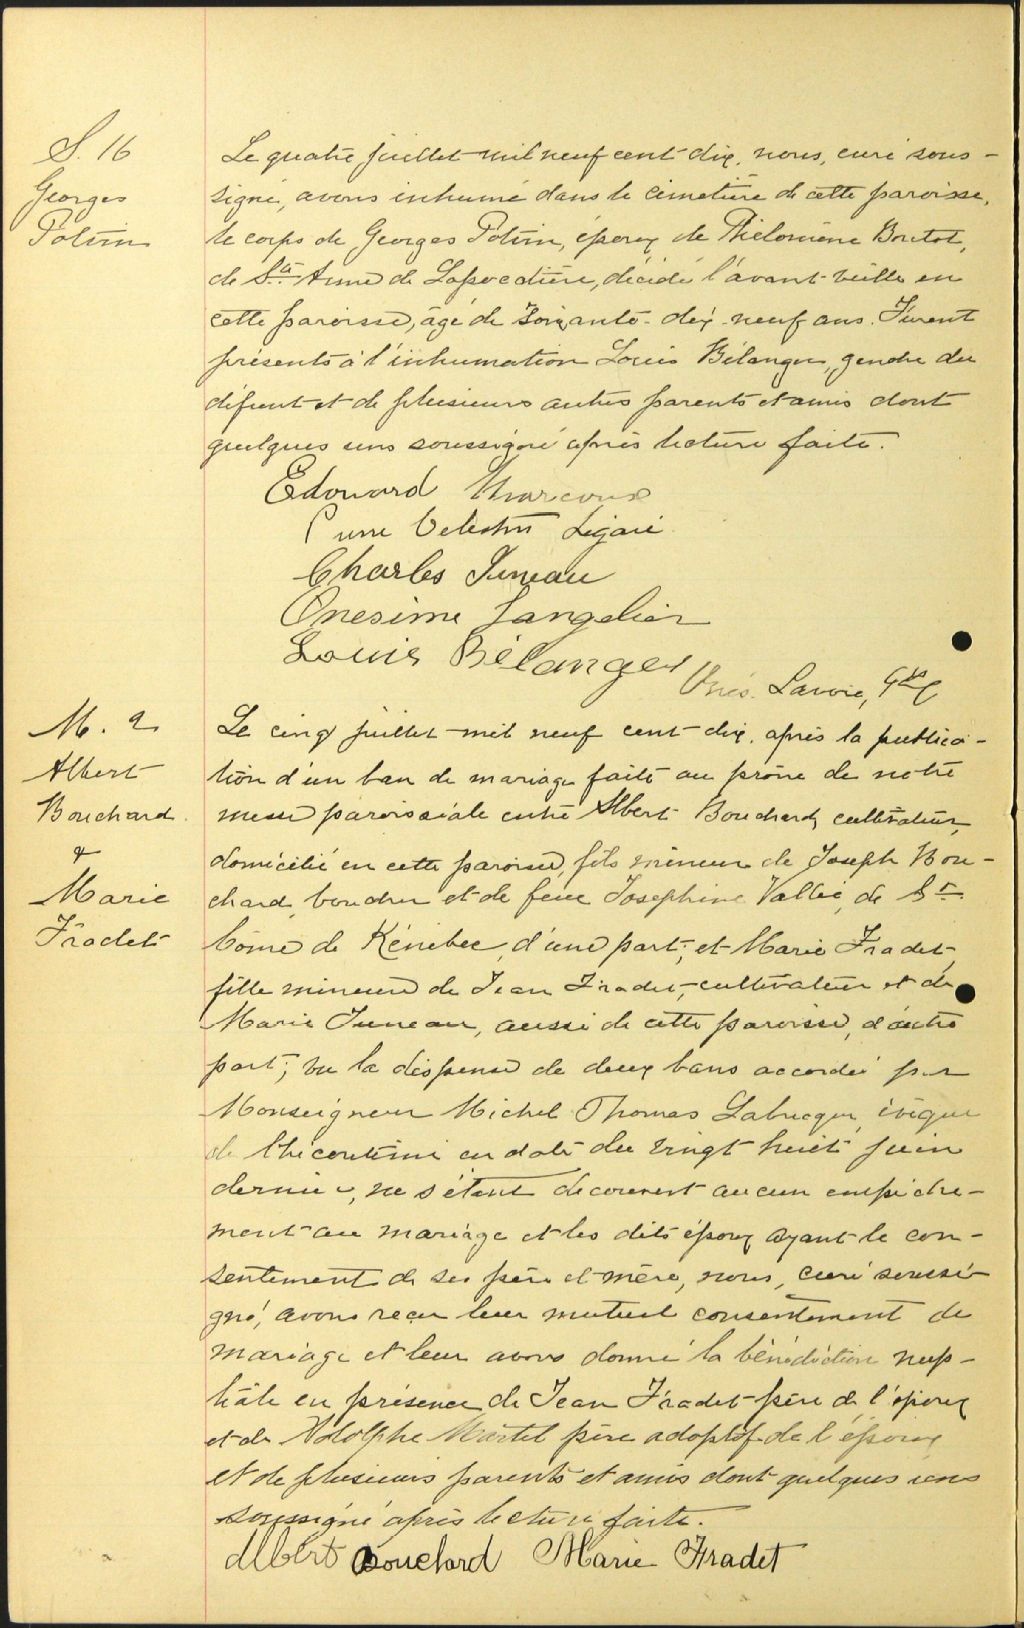 S. 16
Georges
Potvin
Le quatre juillet mil neuf cent dix, nous, curé sous-
signé, avons inhumé dans le cimetière de cette paroisse,
le corps de Georges Potvin, époux de Philomène Boutot,
de Ste Anne de Lapocatière, décédé l'avant-veille en
cette paroisse, âgé de soixante-dix-neuf ans. Furent
présents à l'inhumation Louis Bélanger, gendre du
défunt et de plusieurs autres parents et amis dont
quelques uns soussigné après lecture faite.
Edouard Marcoux
Célestin Légaré
Charles Juneau
Onesime Langelier
Louis Bélanger
Onés. Lavoie, Ptre
M. 2
Albert
Bouchard
&
Marie
Fradet
Le cinq juillet mil neuf cent dix, après la publica-
tion d'un ban de mariage faite au prône de notre
messe paroissiale entre Albert Bouchard, cultivateur,
domicilié en cette paroisse, fils mineur de Joseph Bou-
chard, et de feue Josephine Vallée, de St
Côme de Kénébec, d'une part; et Marie Fradet,
fille mineure de Jean Fradet, cultivateur et de
Marie Juneau, aussi de cette paroisse, d'autre
part; vu la dispense de deux bans accordée par
Monseigneur Michel Thomas Labrecque, évêque
de Chicoutimi en date du vingt huit juin
dernier, ne s'étant découvert aucun empêche-
ment au mariage et les dits époux ayant le con-
sentement de ses père et mère, nous, curé soussi-
gné, avons reçu leur mutuel consentement de
mariage et leur avons donné la bénédiction nup-
tiale en présence de Jean Fradet père de l'épouse
et de Adolphe Martel père adoptif de l'époux
et de plusieurs parents et amis dont quelques uns
soussigné après lecture faite.
Albert Bouchard Marie Fradet